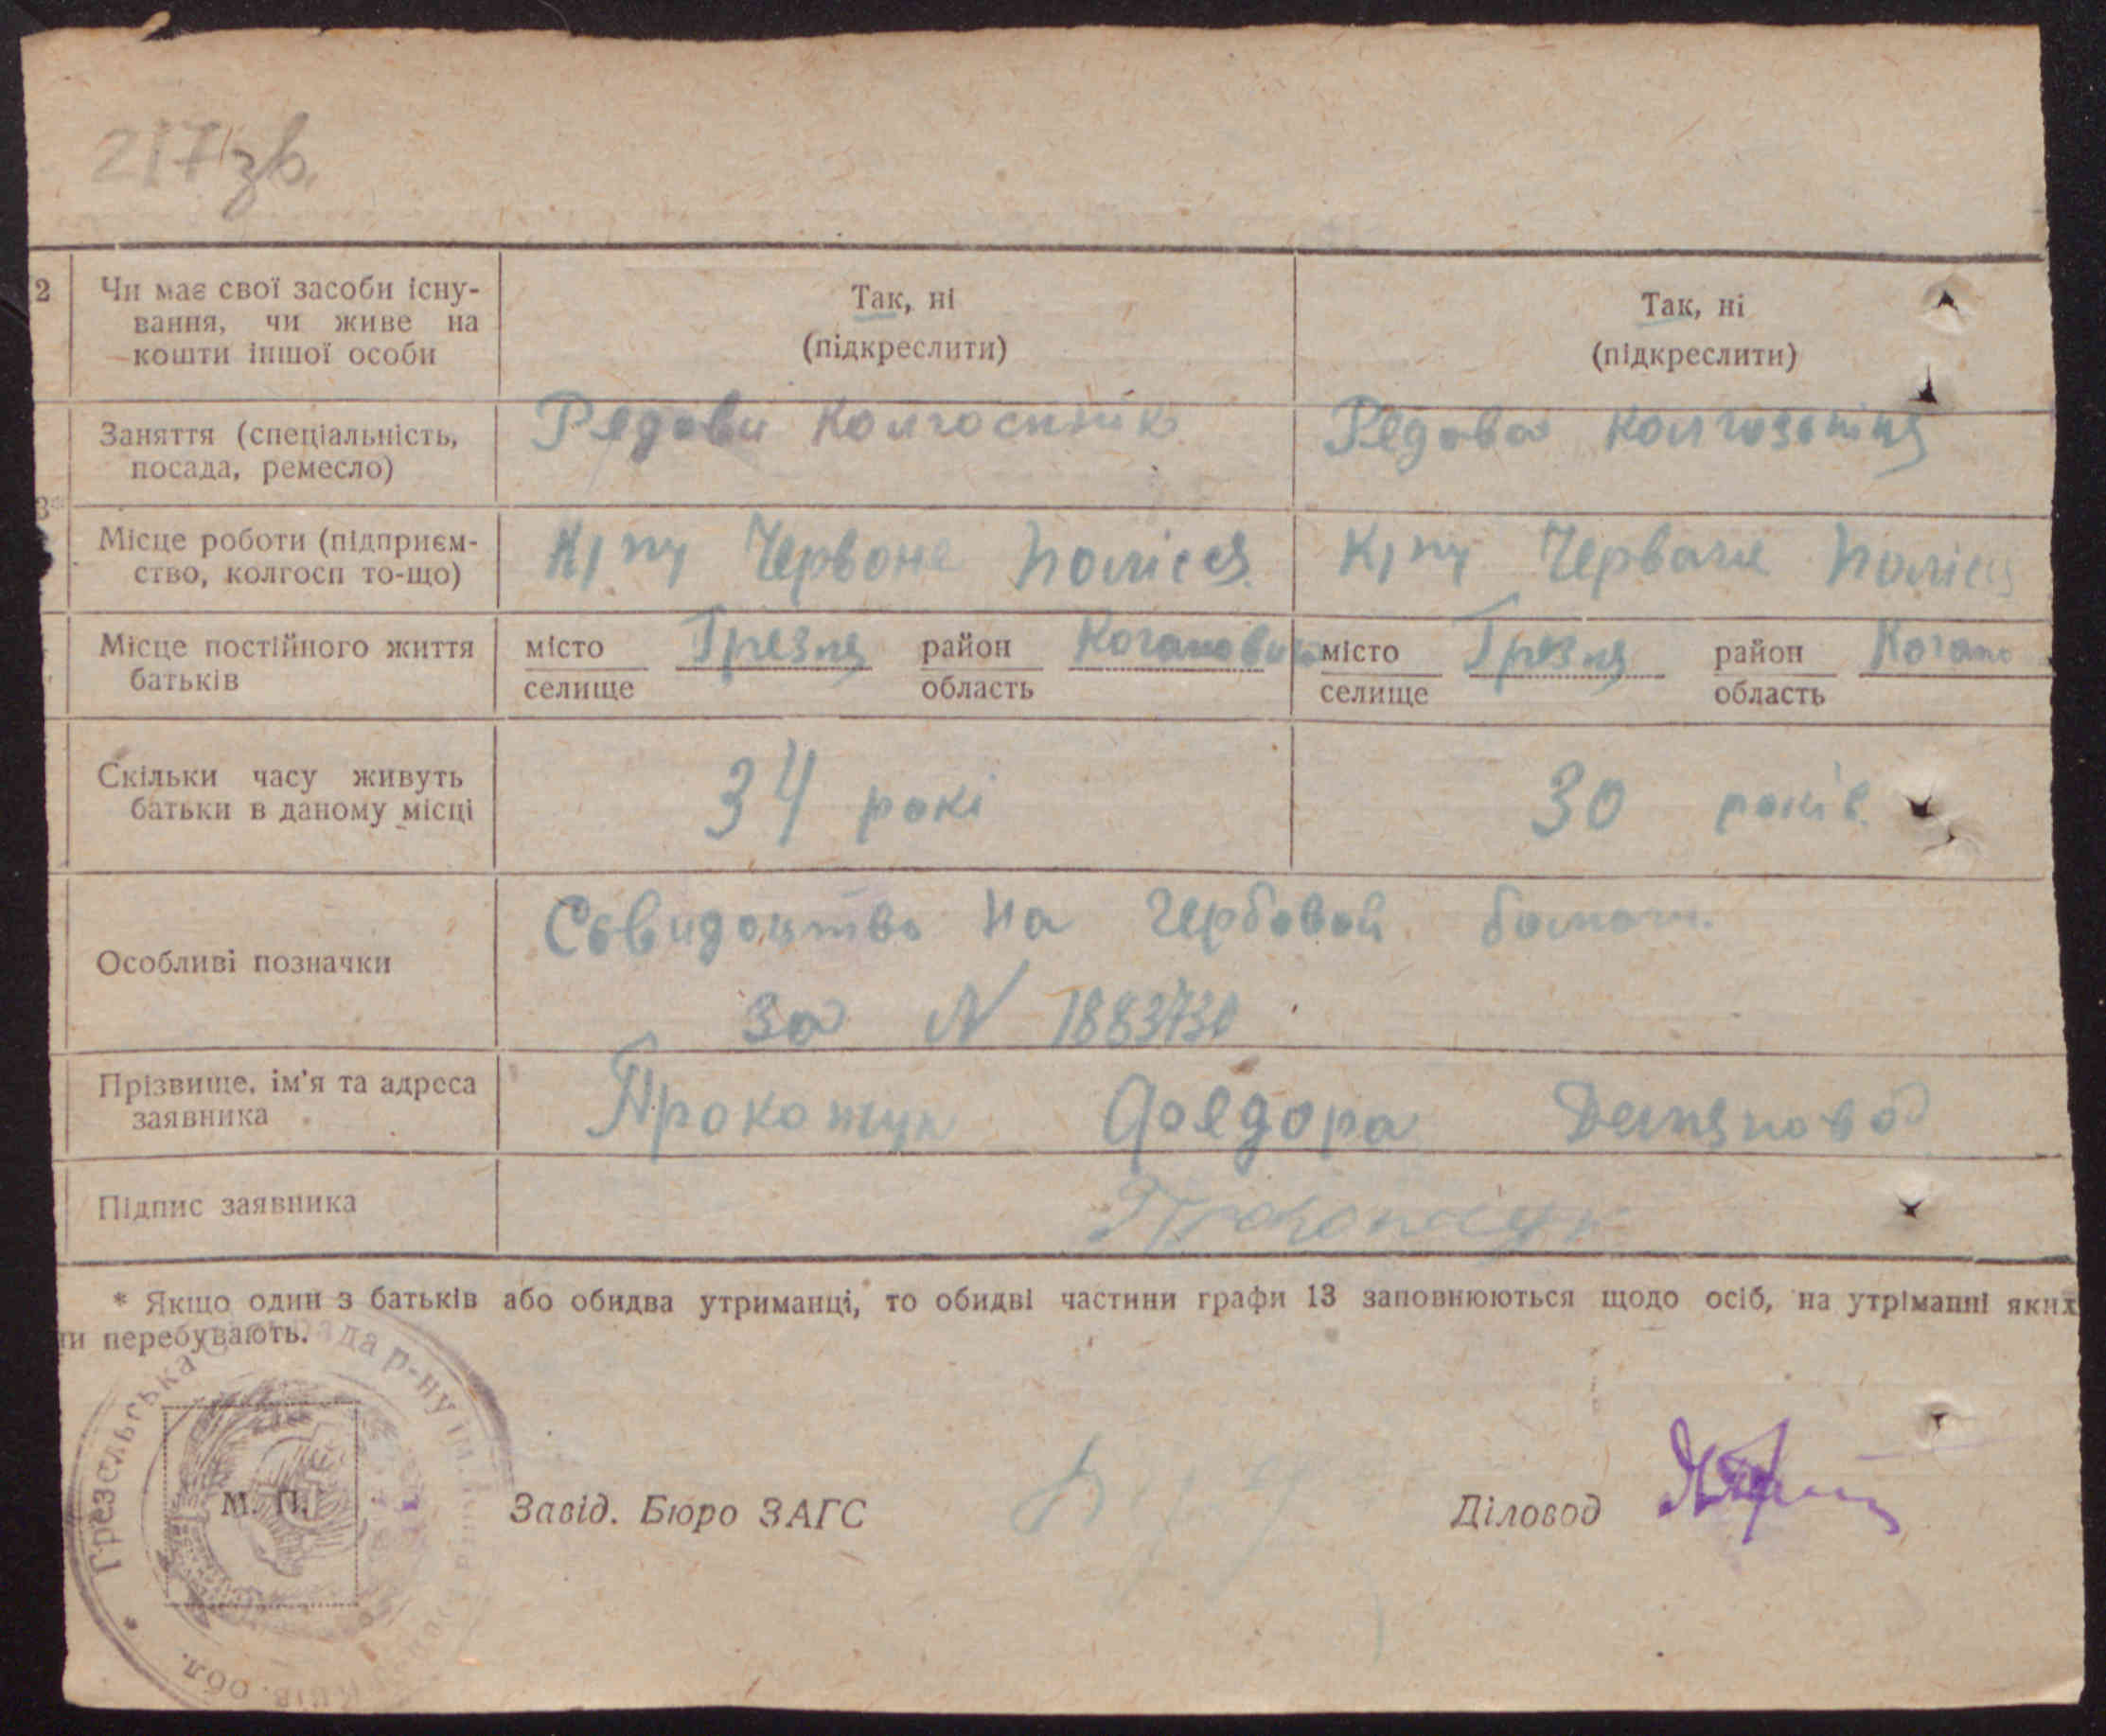 217 зв.
2 Чи має свої засоби існу- Так, ні Так, ні
вання, чи живе на
кошти іншої особи (підкреслити) (підкреслити)
Заняття (спеціальність, Рядови колгоспник Рядова колгозпніця
посада, ремесло)
3*
Місце роботи (підприєм- К/гпу Червоне Полісся К/гпу Червоне Полісся
ство, колгосп то-що)
Місце постійного життя місто Грезля район Коганович місто Грезля район Когано
батьків селище область селище область
Скільки часу живуть 34 рокі 30 років.
батьки в даному місці
Особливі позначки Свидоцтво на гербовой
за N 1883730
Прізвище, ім'я та адреса Прокопчук Федора Демянова
заявника
Підпис заявника Прокопчук
* Якщо один з батьків або обидва утриманці, то обидві частини графи 13 заповнюються щодо осіб, на утріманні яких
ти перебувають.
Грезельська рада р-ну ім. Київ. обл.
М. П.
Завід. Бюро ЗАГС Діловод